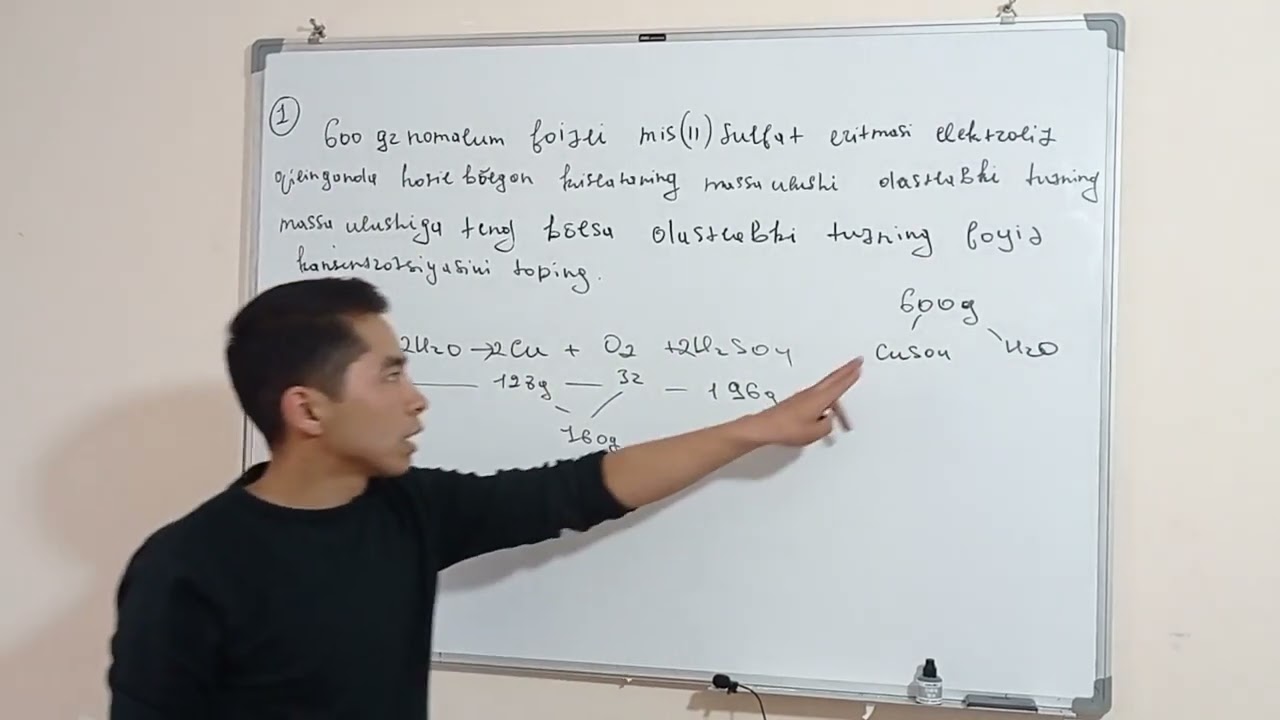 1
600 gr nomalum foizli mis(II) sulfat eritmasi elektroliz
qilinganda hosil bõlgan kislataning massa ulushi dastlabki tuzning
massa ulushiga teng bõlsa dastlabki tuzning foyiz
kansentratsiyasini toping.
600g
CuSO4 H2O
2H2O → 2Cu + O2 + 2H2SO4
128g — 32 — 196g
160g